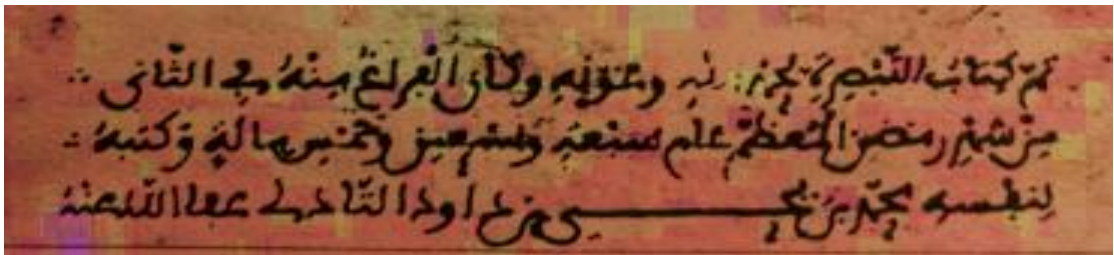 تم كتاب بحمد الله وعونه وكان الفراغ منه في الثاني
من شهر رمضن المعظم عام سبعة وتسعين وخمس مائة وكتبه
لنفسه محمد بن يحيى بن داود التادلي عفا الله عنه